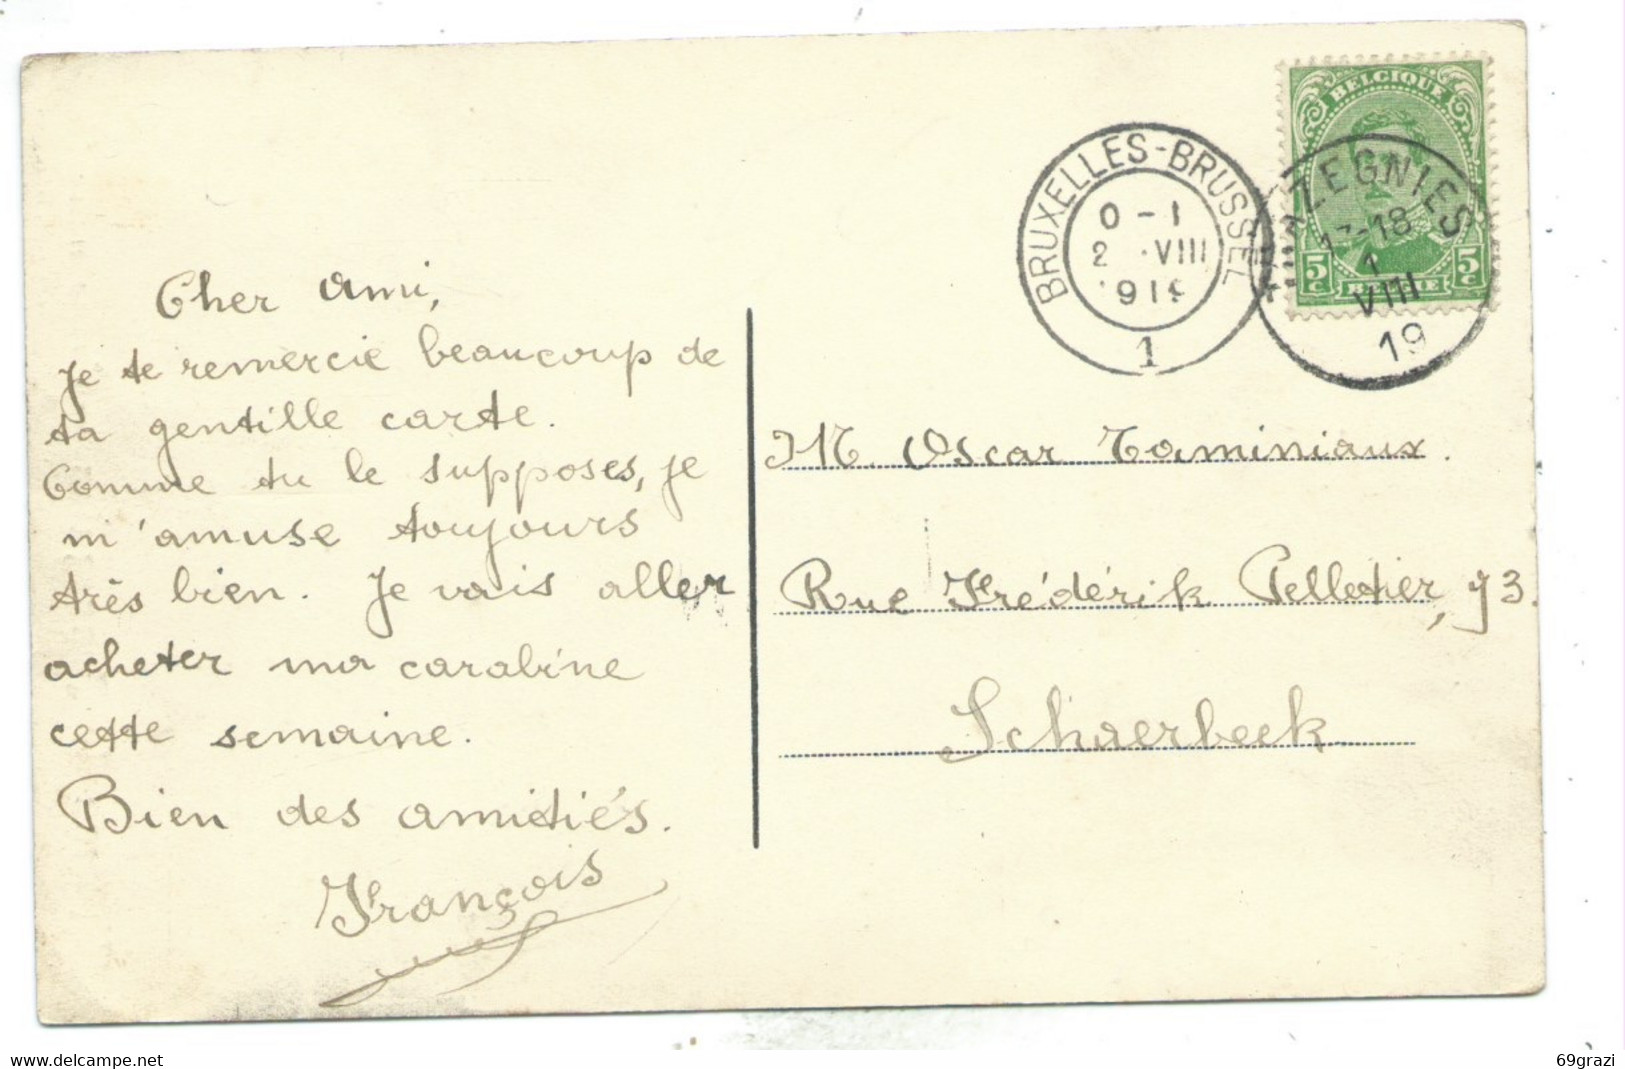 Cher ami,
je te remercie beaucoup de
ta gentille carte.
Comme tu le supposes, je
m'amuse toujours
très bien. Je vais aller
acheter ma carabine
cette semaine.
Bien des amitiés.
François
BRUXELLES-BRUSSEL
0-1
2 VIII
1919
1
BELGIQUE
5c 5c
BELGIE
ZEGNIES
17-18
1
VIII
19
M Oscar Taminiaux.
Rue Frédérik Pelletier, 93.
Schaerbeek
www.delcampe.net
69grazi